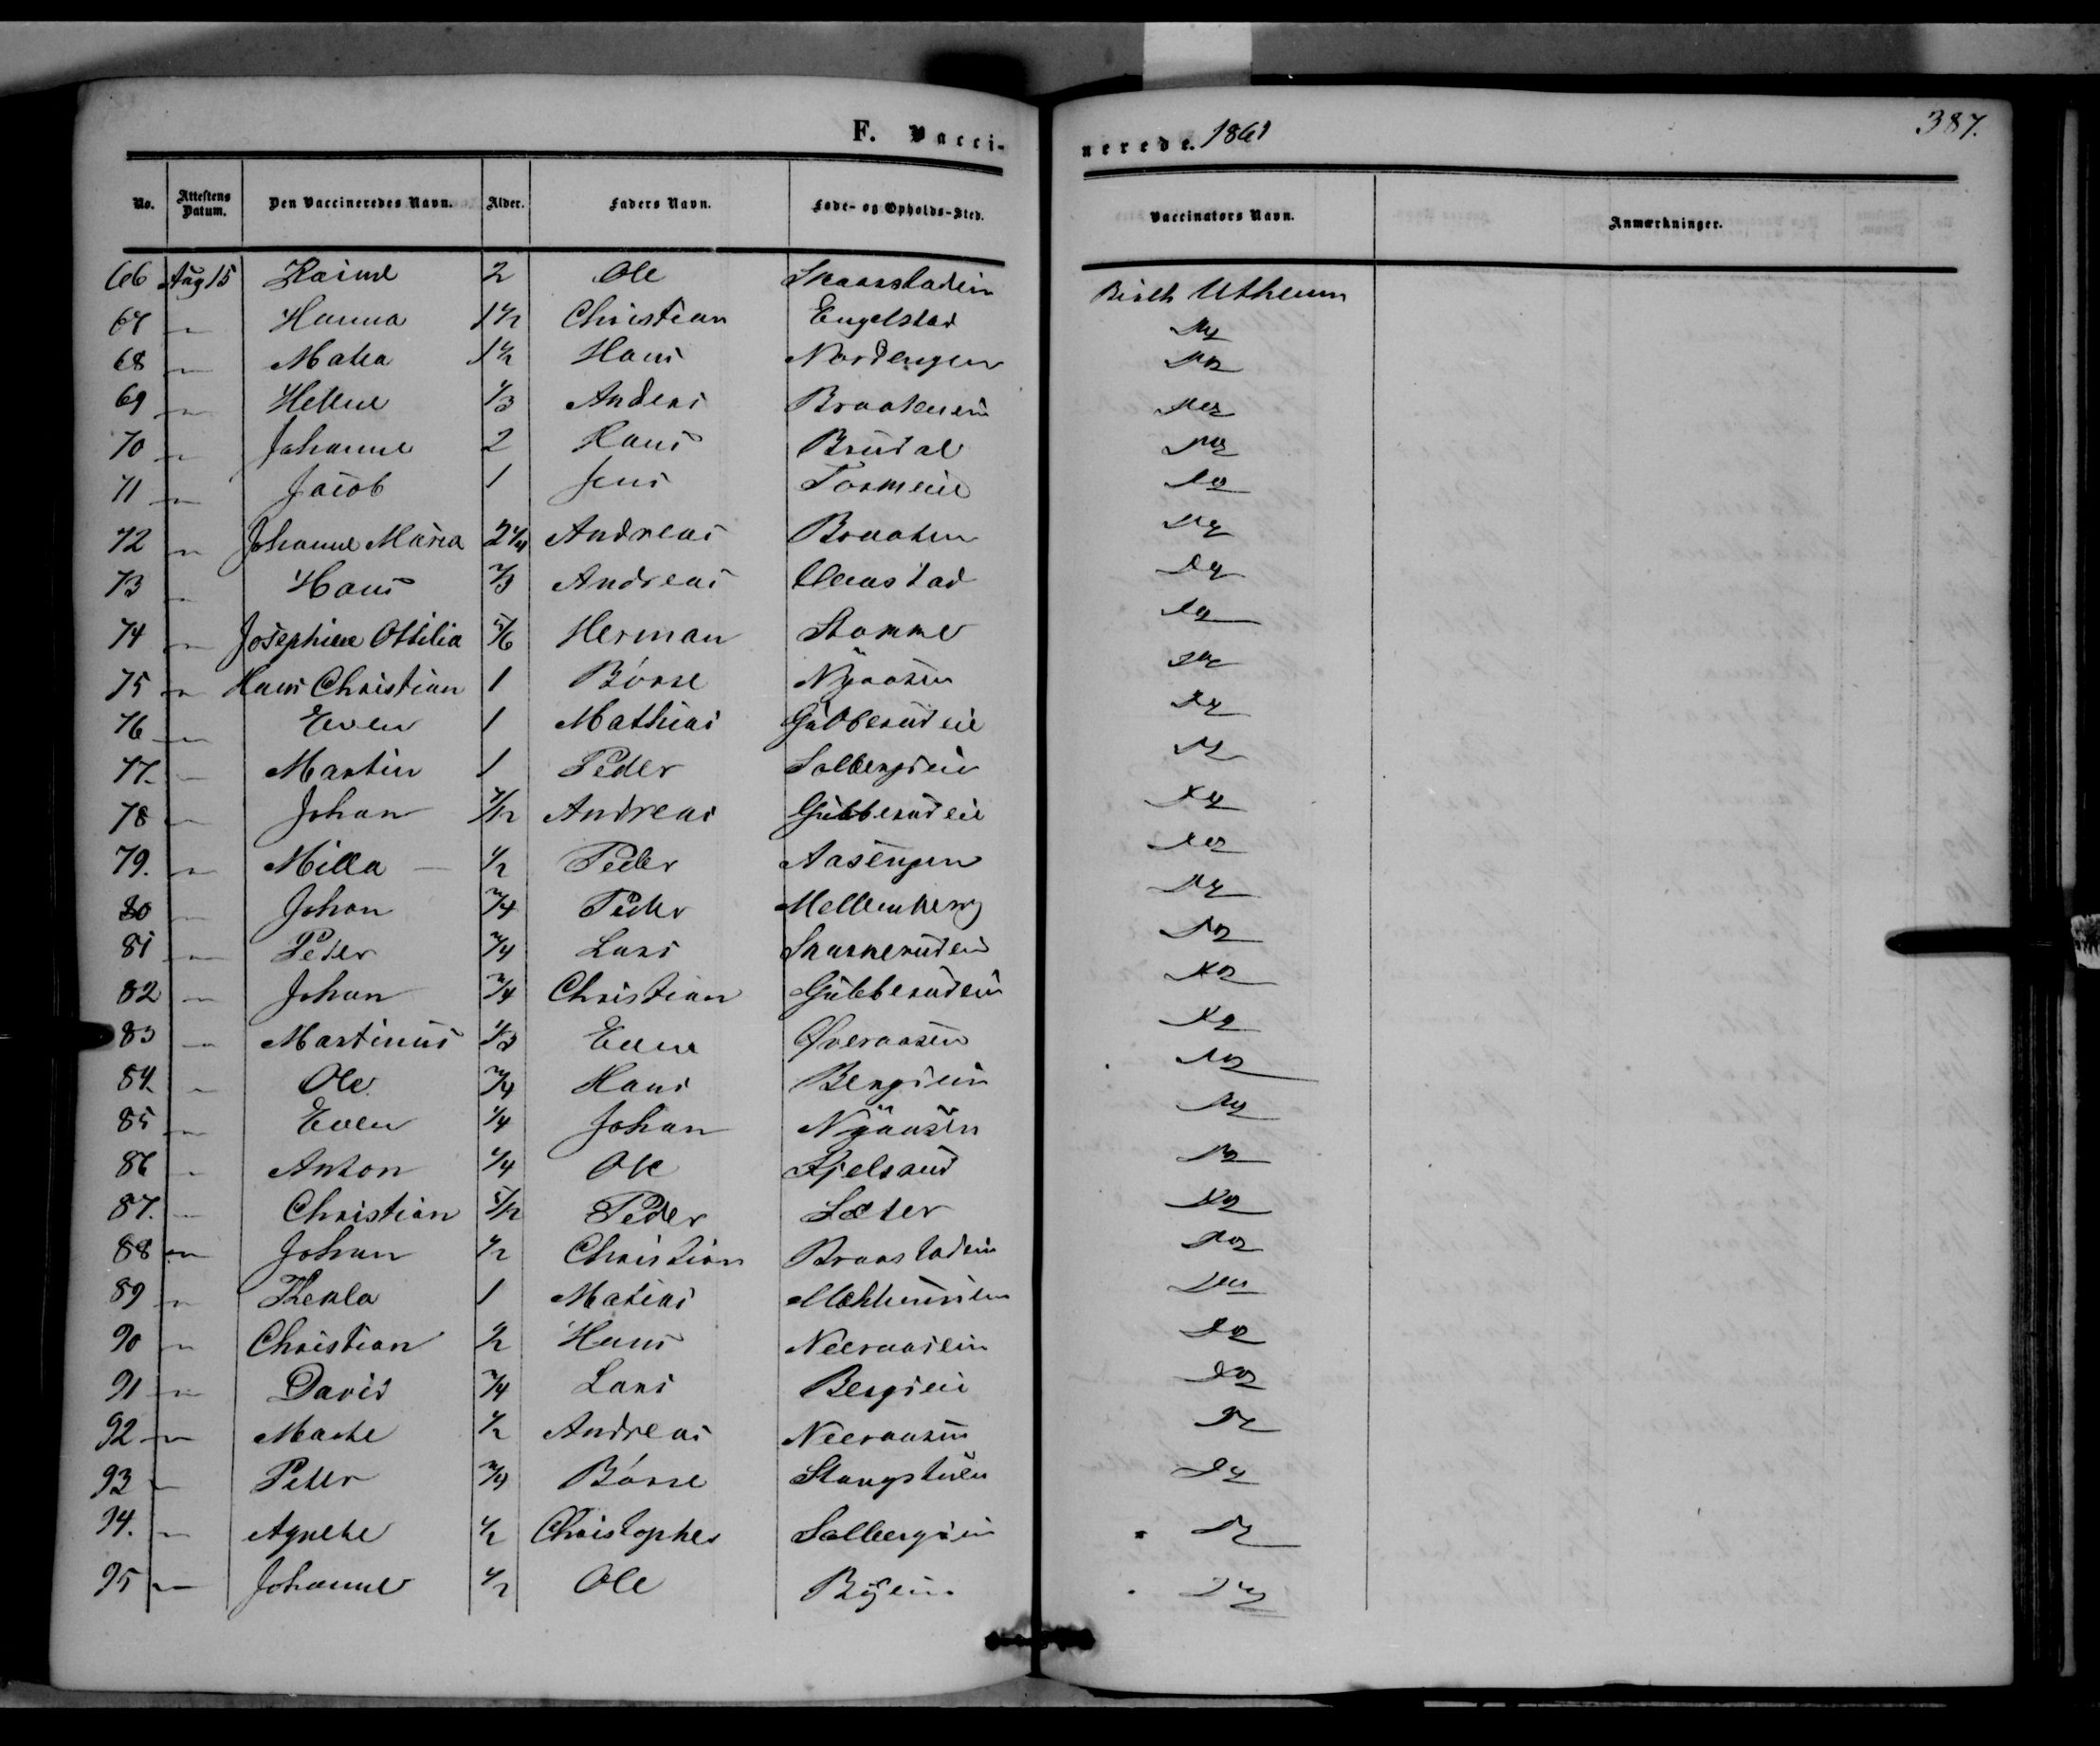 F. Vacci-
nerede. 1861
387.
No. Attestens Datum. Den Vaccineredes Navn. Alder. Faders Navn. Føde- og Opholds-Sted. Vaccinators Navn. Anmærkninger.
66 Aug 15 Karine 2 Ole Skaarstadein Birth Utheim
67 " Hanna 1 1/2 Christian Engelstad Do
68 " Mathea 1 1/2 Hans Nordengen Do
69 " Hellene 1/3 Anders Braatenein Do
70 " Johanne 2 Hans Brudal Do
71 " Jacob 1 Jens Tormeie Do
72 " Johanne Maria 2 1/4 Andreas Braaten Do
73 " Hans 2/3 Andreas Clemstad Do
74 " Josephine Ottilia 5/6 Herman Stamme Do
75 " Hans Christian 1 Börre Nyaasen Do
76 " Even 1 Mathias Gubberudeie Do
77. " Martin 1 Peder Solbergseie Do
78 " Johan 7/12 Andreas Gubberudeie Do
79. " Milla 1/2 Peder Aasengen Do
80 " Johan 3/4 Peder Mellemberg Do
81 " Peder 3/4 Lars Skarkerudein Do
82 " Johan 3/4 Christian Gubberudein Do
83 " Martinus 1/3 Even Overaasen Do
84. " Ole 3/4 Hans Bergsein Do
85 " Even 1/4 Johan Nyaasen Do
86 " Anton 1/4 Ole Kjelsrud Do
87. " Christian 5/12 Peder Sæter Do
88 " Johan 1/2 Christian Braastadein Do
89 " Thenla 1 Matias Do
90 " Christian 1/2 Hans Neeraasein Do
91 " David 3/4 Lars Bergseie Do
92 " Marte 1/2 Andreas Neeraasen Do
93 " Peder 3/4 Börre Stangstuen Do
94. " Agnethe 1/2 Christopher Solbergsein Do
95 " Johanne 1/2 Ole Byein Do